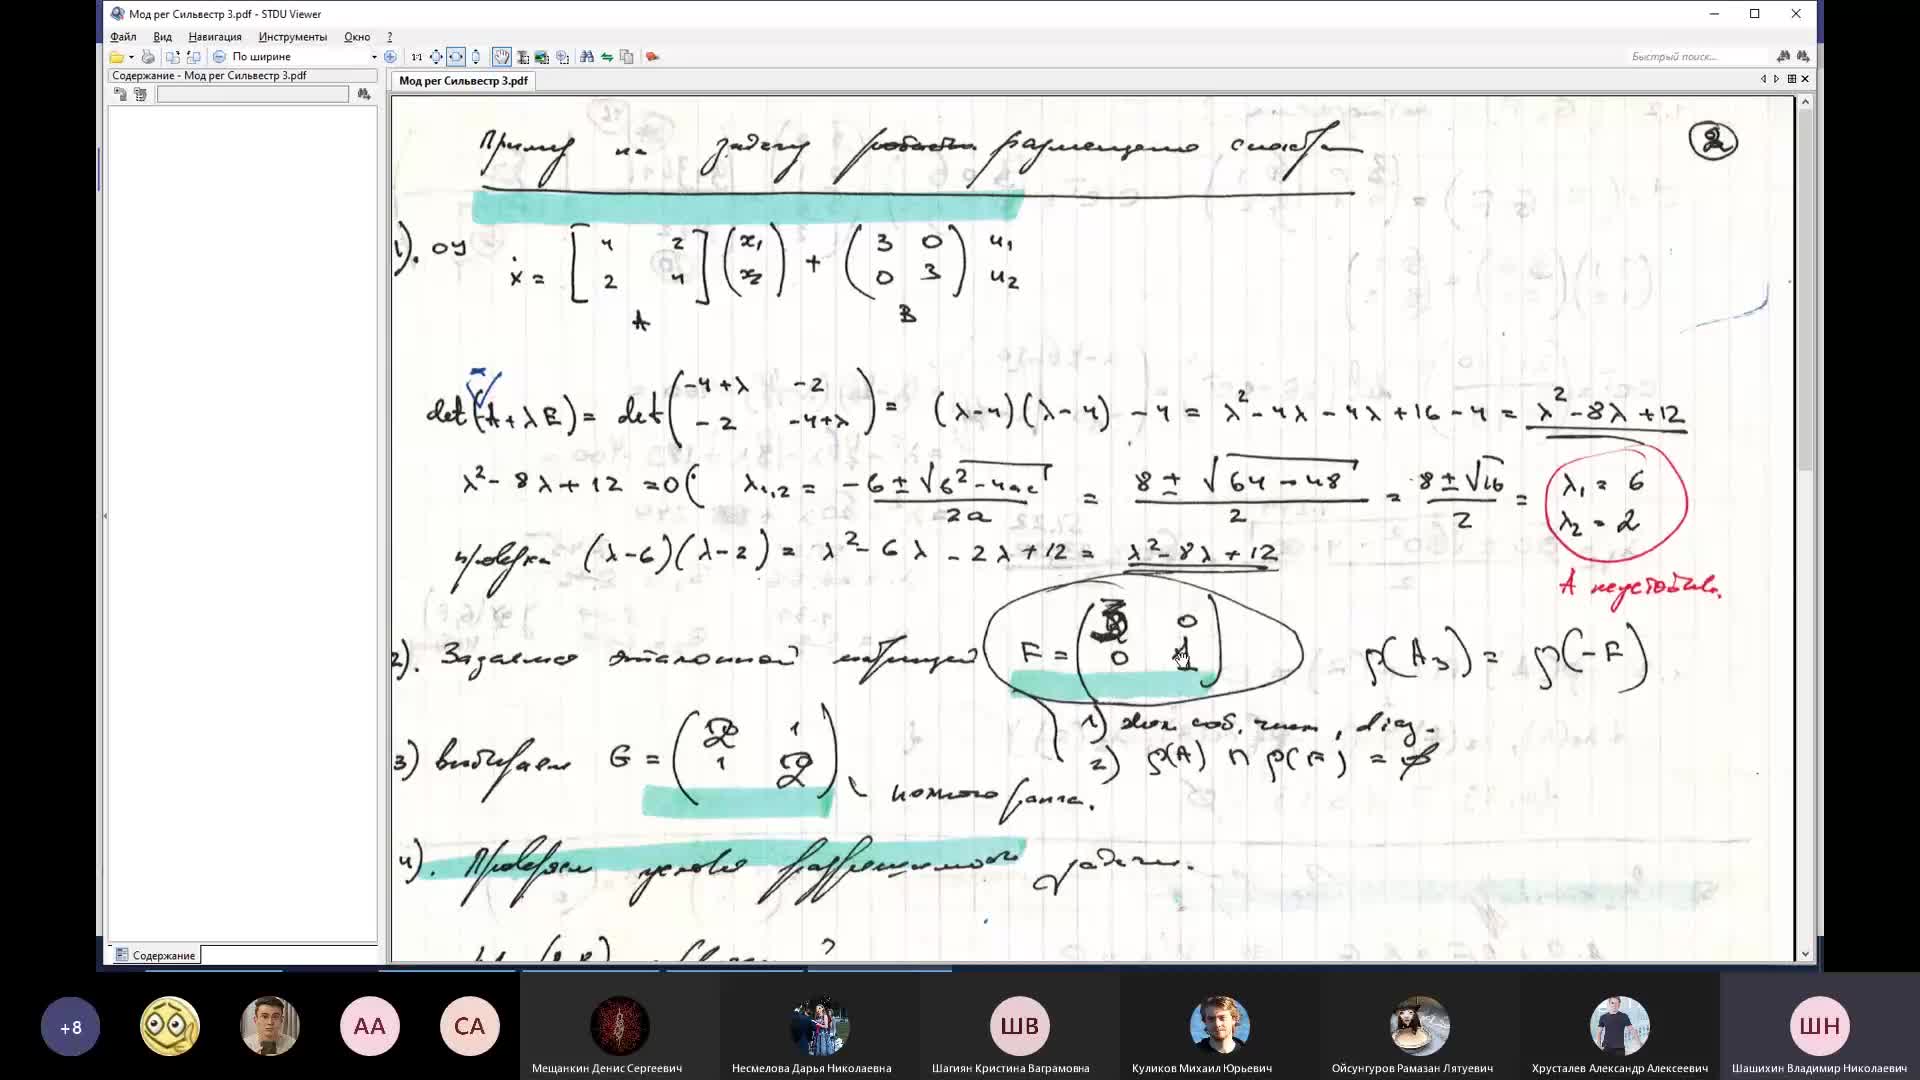 Мод рег Сильвестр 3.pdf - STDU Viewer
Файл Вид Навигация Инструменты Окно ?
По ширине 1:1 Быстрый поиск...
Содержание - Мод рег Сильвестр 3.pdf
Мод рег Сильвестр 3.pdf
Пример на задачу размещения спектра
2
1). ОУ ẋ = [4 2; 2 4] (x1; x2) + (3 0; 0 3) u1 u2
A B
det(-A+λE) = det(-4+λ -2; -2 -4+λ) = (λ-4)(λ-4) - 4 = λ²-4λ-4λ+16-4 = λ²-8λ+12
λ²-8λ+12=0 λ1,2 = -б±√б²-4ас / 2a = 8±√64-48 / 2 = 8±√16 / 2 = λ1 = 6 λ2 = 2
проверка (λ-6)(λ-2) = λ²-6λ-2λ+12 = λ²-8λ+12
А неустойчив.
2). Задаемся эталонной матрицей F = (3 0; 0 1) ρ(Aэ) = ρ(-F)
1) соб. чисел, diag.
3) выбираем G = (2 1; 1 2) полного ранга.
2) ρ(A) ∩ ρ(F) = ∅
4). Проверяем условия разрешимости задачи.
Содержание
+8
AA
CA
ШВ
ШН
Мещанкин Денис Сергеевич
Несмелова Дарья Николаевна
Шагиян Кристина Ваграмовна
Куликов Михаил Юрьевич
Ойсунгуров Рамазан Лятуевич
Хрусталев Александр Алексеевич
Шашихин Владимир Николаевич